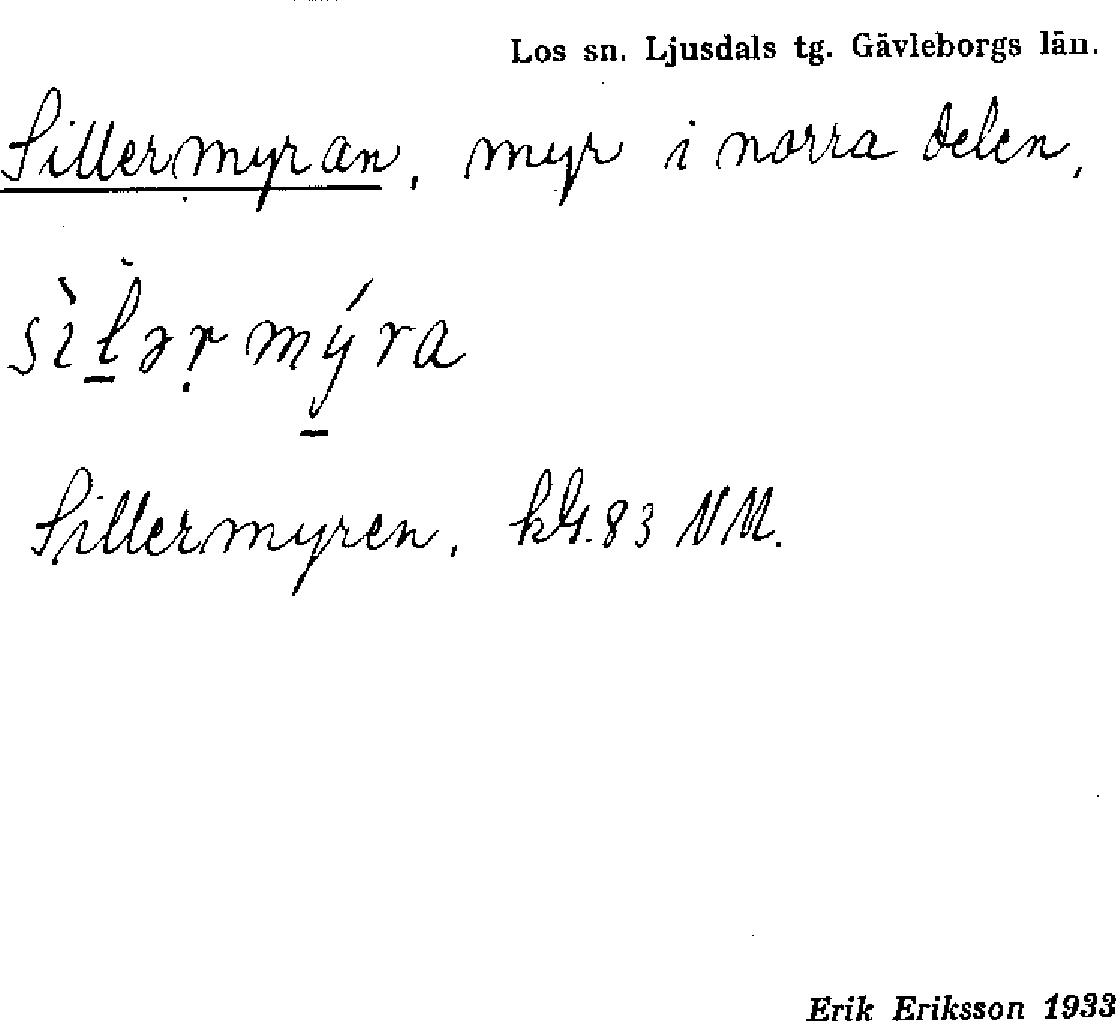 Los sn. Ljusdals tg. Gävleborgs län.
Sillermyran, myr i norra delen,
sìl̠ərmý̠ra
Sillermyren, kbl. 83 NM.
Erik Eriksson 1933